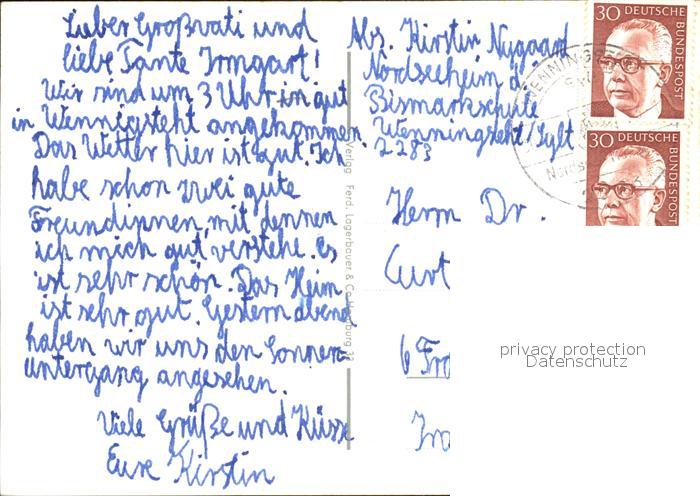 Lieber Großvati und
liebe Tante Irmgart!
Wir sind um 3 Uhr in gut
in Wennigsteht angekommen.
Das Wetter hier ist gut. Ich
habe schon zwei gute
Freundinnen, mit dennen
ich mich gut verstehe. Es
ist sehr schön. Das Heim
ist sehr gut. Gestern abend
haben wir uns den Sonnen-
untergang angesehen.
Viele Grüße und Küsse
Eure Kirstin
Verlag Ferd. Lagerbauer & Co Hamburg
Abs. Kirstin Nygaard
Nordseeheim d.
Bismarkschule
Wenningsteht/Sylt
2283
Herrn Dr.
Curt
6 Fra
30 DEUTSCHE BUNDESPOST
30 DEUTSCHE BUNDESPOST
privacy protection
Datenschutz